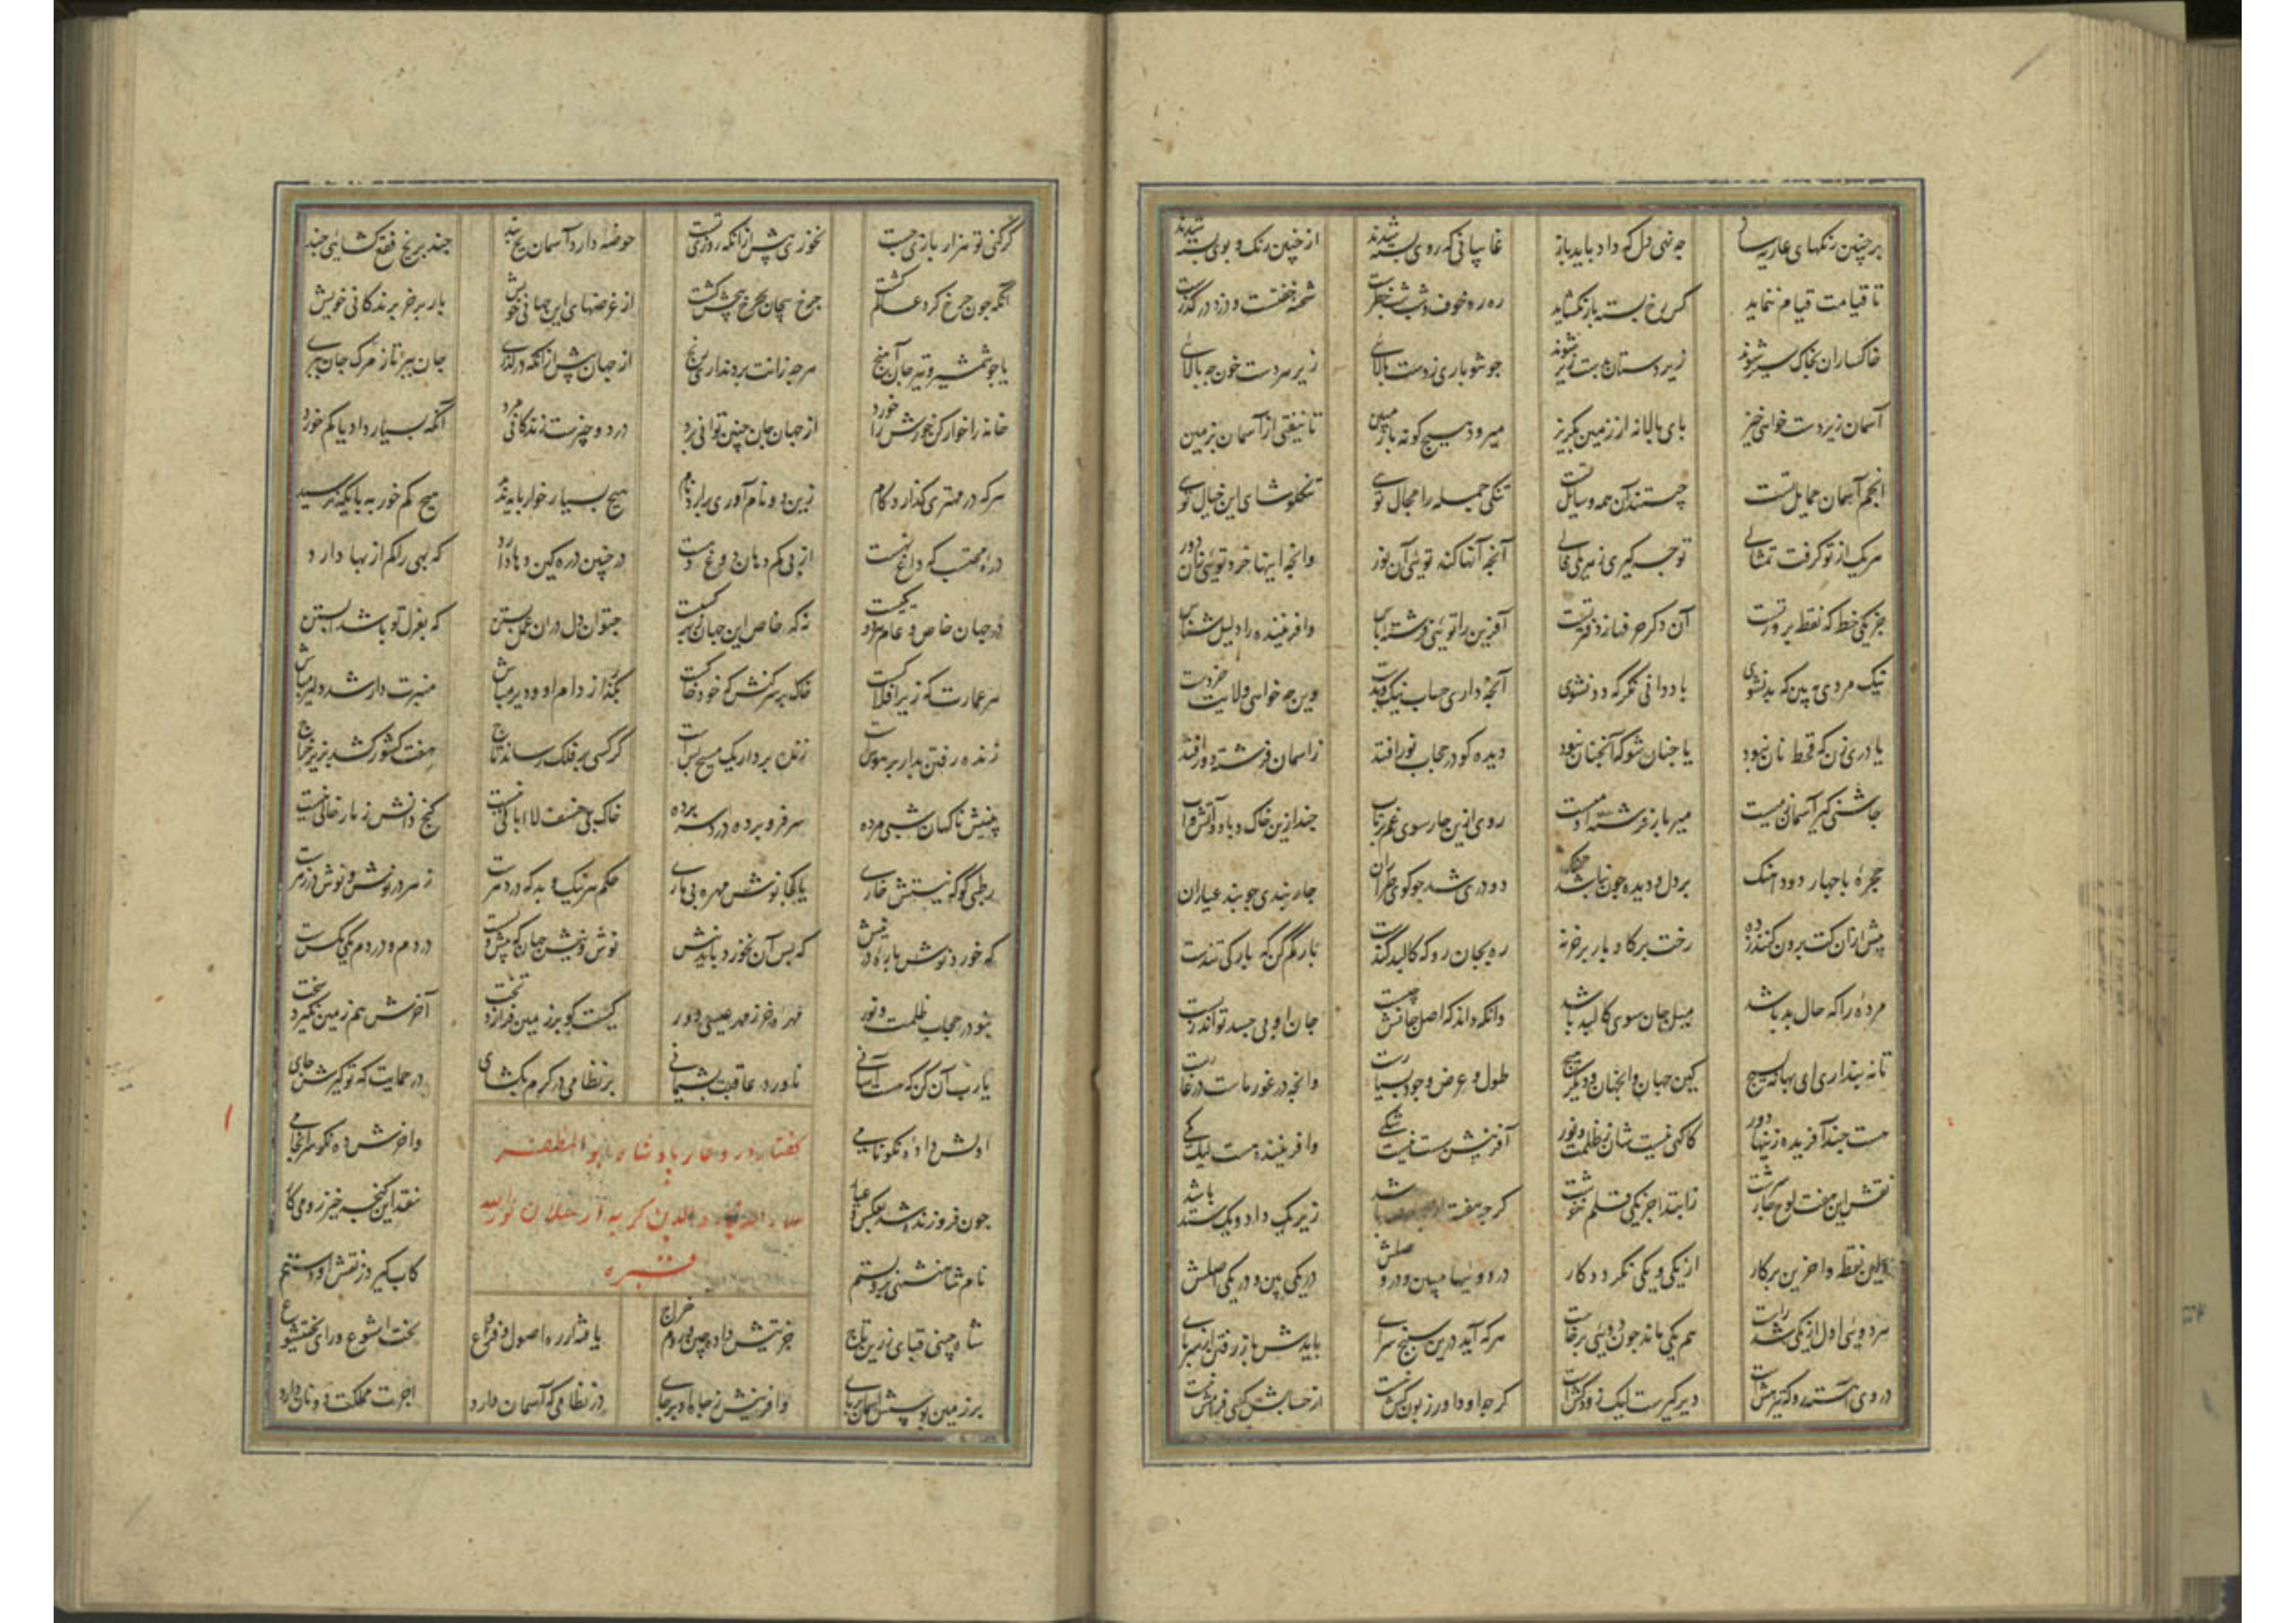 بر چنین رنکهای عاریه سای چه نهی دل که داد باید باز غایبانی که روی بسته شدند از چنین رنک و بوی بسته شدند
تا قیامت قیام ننماید کس رخ بسته باز نکشاید ره ره خوف و شب شب خطرست شحنه خفتست و دزد در کذرست
خاکساران بخاک سیر شوند زیردستان بدست زیر شوند جو تو باری زدست بالائی زیر هر دست خون جه بالائی
آسمان زیردست خواهی خیز بای بالا نه از زمین بکریز میرو و هیج کونه باز مبین تا نیفتی از آسمان بزمین
انجم آسمان حمایل تست چیستند آن همه وسایل تست تنکی جمله را مجال توی تنکلوشای این خیال توی
هر یک از تو کرفت تمثالی تو جه کیری ز هر یکی فالی آنجه آنها کند توئی آن نور وانجه اینها خرد توئی زان دور
جز یکی خط که نقطه برور تست آن دکر حرفها ز دفتر تست آفرین را توئی فرشته باس وافریننده را دلیل شناس
نیک مردی جه بین که بد نشوی با ددانی نکر که دد نشوی آنجه داری حساب نیک و بدت وین جه خواهی ولایت خردست
یا دری زن که قحط نان نبود یا جنان شو که آنجنان نبود دیده کو در حجاب نور افتد زاسمان فرشته دور افتد
جاشنی کیر آسمان زمیست میر باز فرشته آدمیست روی ازین جار سوی غم برتاب جند ازین خاک و باد و آتش و آب
حجرهٔ با جهار دود آهنک بر دل و دیده جون نباشد تنک دو دری شد جو کوی طراران جار بندی جو بند عیاران
پیش ازان کت برون کنند ز ده رخت بر کاو و بار بر خر نه ره بجان رو که کالبد کندست بار کم کن که بارکی تندست
مردهٔ را که حال بد باشد میل جان سوی کالبد باشد وانکه داند که اصل جانش جیست جان او بی جسد تواند زیست
تا نبنداری ای بهانه بسیج کین جهان و آنجهان و دیکر هیج طول و عرض وجود بسیارست وانجه در غور ماست در غارست
هست جند آفریده زینها دور کاکهی نیست شان ز ظلمت و نور آفرینش بسیست نیست شکی وافریننده هست لیک یکی
نقش این هفت لوح جار سرشت زابتدا جز یکی قلم ننوشت کرجه هفته زیر یک داد و یک ستد باشد
اولین نقطه و اخرین برکار از یکی و یکی نکردد کار در دوئیها مبین و در وصلش در یکی بین و در یکی اصلش
هر دوئی اول از یکی شد راست هم یکی ماند جون دوئی برخاست هرکه آید درین سبنج سرای بایدش باز رفتن از سر بای
در وی آهسته رو که تیز هشست دیر کیرست لیک زود کشست کرجه او داور زبون کش نیست از حسابش کسی فرامش نیست
کر کنی تو هزار بازی جست نخوری پیش ازانکه روزی تست حوضه دارد آسمان یخ بند جند بر یخ فقع کشائی جند
آنکه جون جرخ کرد عالم کشت جرخ سجان بجرخ پیجش کشت از غرضهای این جهانی خویش بار برخر بزندکانی خویش
یا جو شمشیر و تیر جان آهنج هرجه زانت برد نداری رنج از جهان پیش ازانکه درکذری جان ببر تا ز مرک جان ببری
خانه را خوار کن خورش را خورد از جهان جان جنین توانی برد در دو جیزست زندکانی مرد آنکه بسیار داد یا کم خورد
هرکه در مهتری کذارد کام زین دو نام آوری برارد نام هیج بسیار خوار بایه ندید هیج کم خور به بایکه نرسید
دراه محتسب که داغ نهست از بی کم دهان دوغ دهست در جنین ده که کین و ها دارد که بهی را کم از بها دارد
در جهان خاص و عام هر دو یکیست نه که خاص این جهان کیست جتوان دل دران عمل بستن که بعزل تو باشد آبستن
هر عمارت که زیر افلاکست خاک برسر کنش که خود خاکست بکذر از دام او و دیر مباش منبرت دار شد دلیر مباش
زنده رفتن بدار بر هوست زنده بردار یک مسیح بس است کر کسی بر فلک رساند تاج هفت کشور کشد بزیر خراج
بینیش ناکهان شبی مرده سر فرو برده دردسر برده خاک بی خسف لا ابالی نیست کنج دانش ز مار خالی نیست
رطبی کو که نیستش خاری یا کجا نوش مهره بی ماری حکم هر نیک و بد که در دهرست زهر در نوش و نوش در زهرست
که خورد نوش بارهٔ در پیش کز بس آن نخورد باید نیش نوش و نیش جهان که پیش و بست در دم و در دم یکی مکسست
نبود در حجاب ظلمت و نور مهرهٔ خر ز مهد عیسی دور کیست کو بر زمین فرازد تخت کآخرش هم زمین نکیرد سخت
یارب آن کن که هست آسانی ناورد عاقبت بشیمانی بر نظامی در کرم بکشای در حمایت که تو کیرش جای
اولش دادهٔ نکونامی واخرش ده نکو سرانجامی
کفتار در دعای پادشاه ابو المظفر
علاء الدین کربه ارسلان نورالله
قبره
جون فروزنده شد بعکس و عیار نقد این کنجه خیز رومی کار
نام شاهنشهی برو بستم کاب کیرد ز نقش او دستم
شاه چینی قبای زرین تاج جزیتش داده چین و روم خراج یافته از ره اصول و فروع بخت ایشوع و رای بختیشوع
بر زمین بوسش آسمان بر بای وافرینش ز جاه او بر جای در نظامی که آسمان دارد اجرت مملکت دو نان دارد